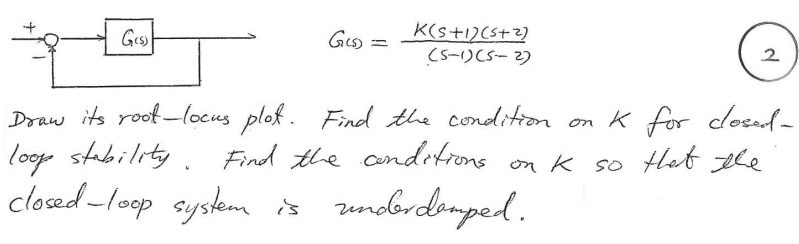 +
G(s)
−
G(s) = K(s+1)(s+2) / (s-1)(s-2)
2
Draw its root-locus plot. Find the condition on K for closed-
loop stability. Find the conditions on K so that the
closed-loop system is underdamped.